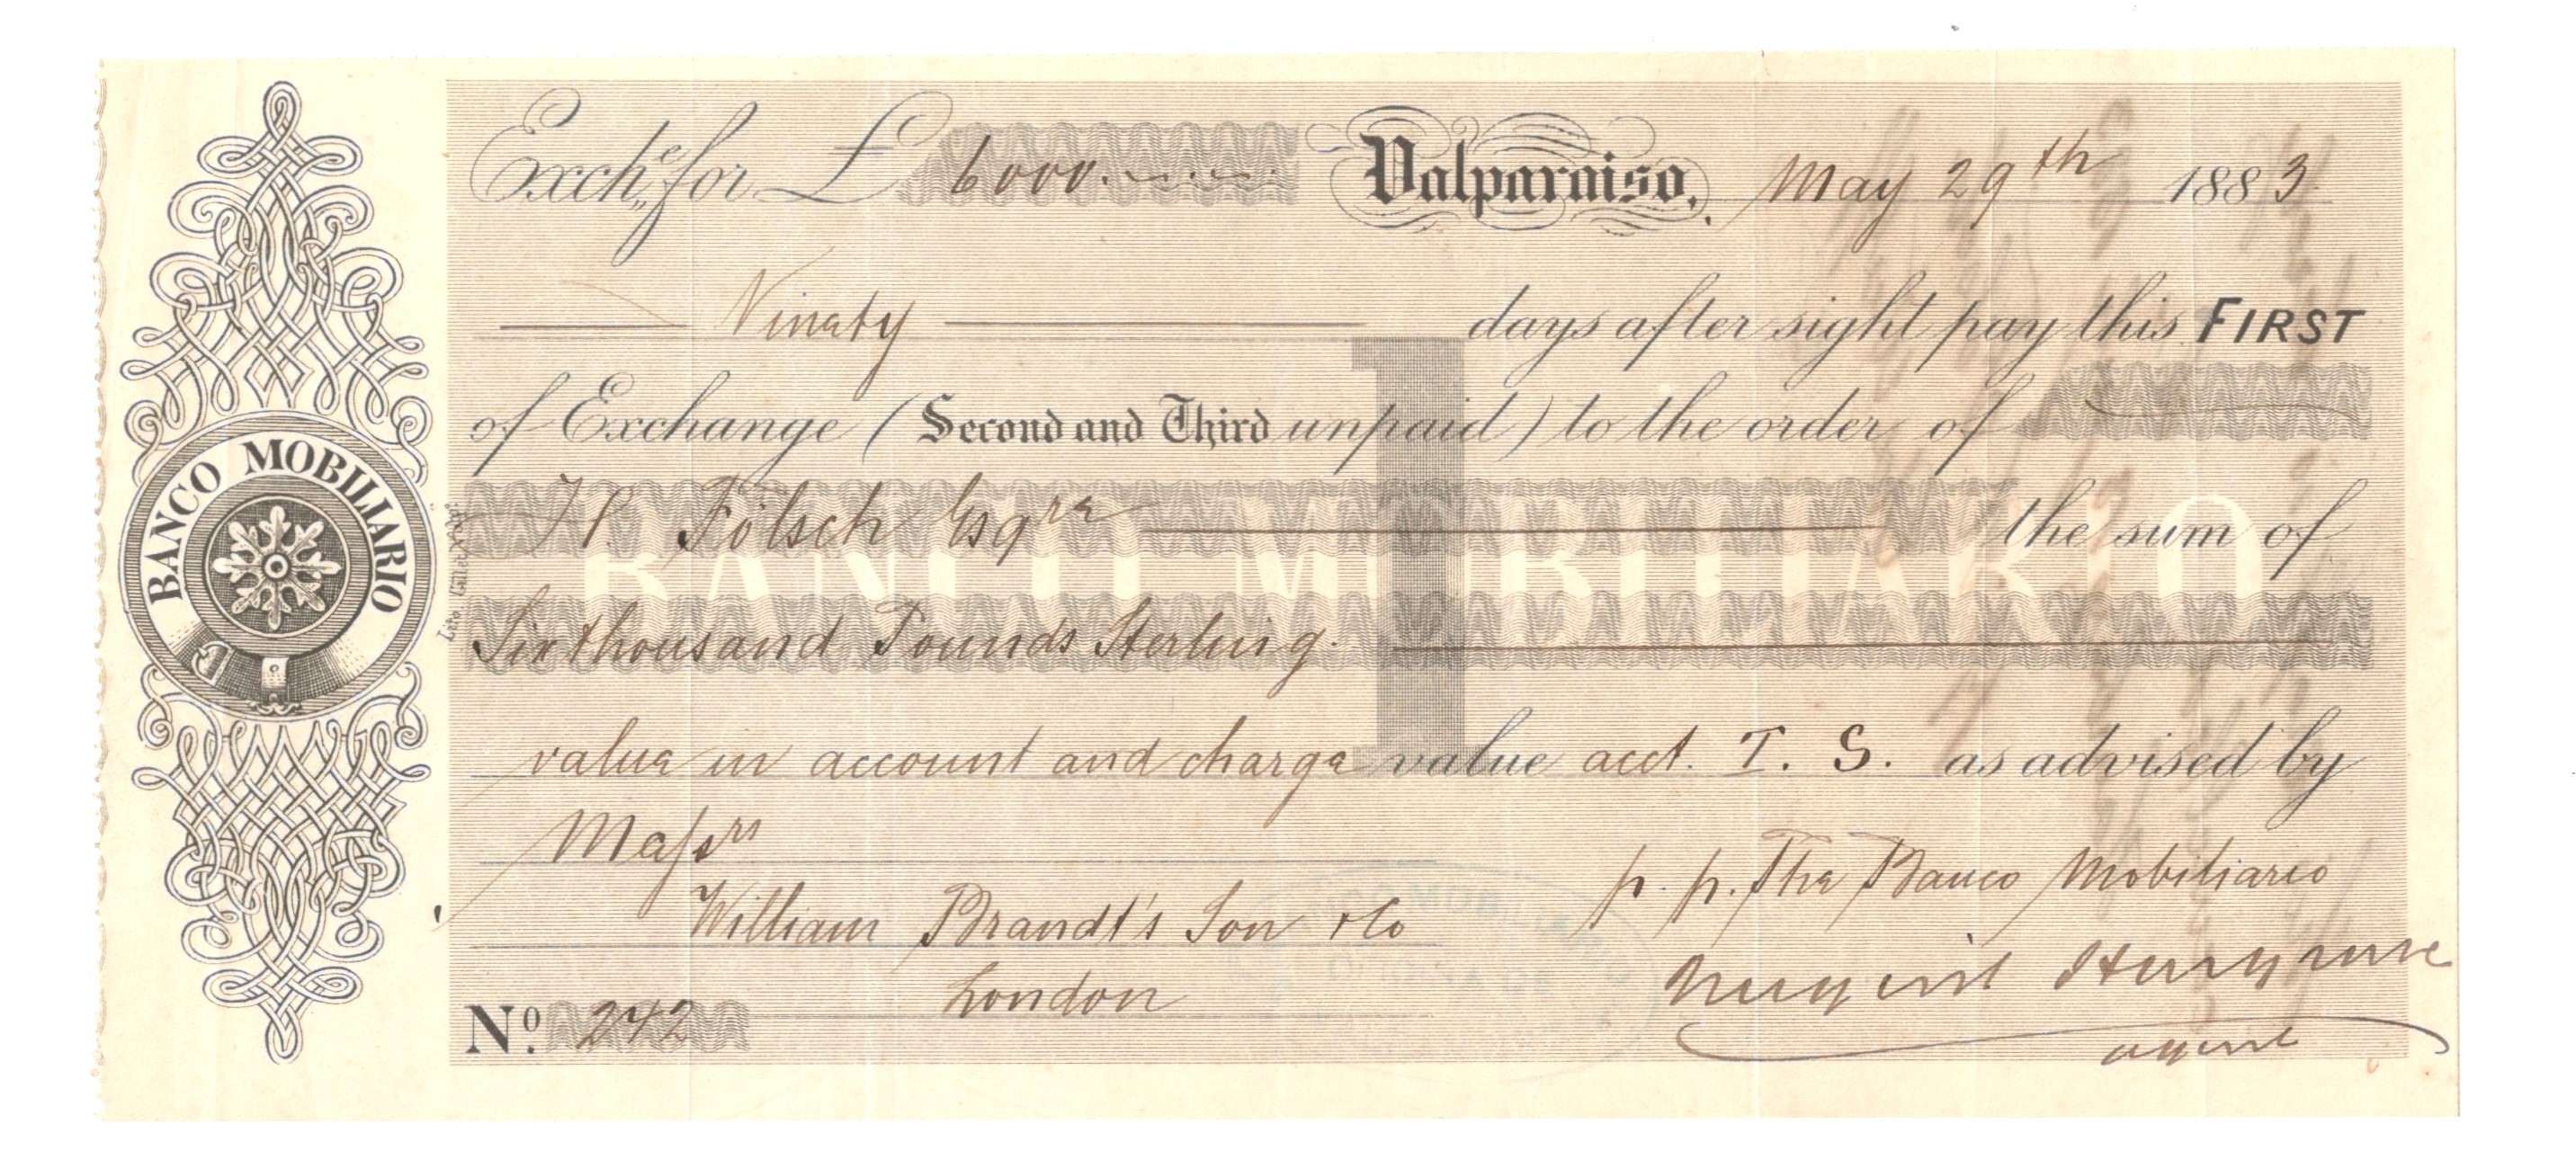 Exche for £ 6000. Valparaiso, May 29th 1883.
Ninety days after sight pay this FIRST
of Exchange (Second and Third unpaid) to the order of
H. Fölsch Esqre the sum of
BANCO MOBILIARIO
Six thousand Pounds Sterling.
1
value in account and charge value acct. T. S. as advised by
Messrs
William Brandt's Son & Co
London
p. p. The Banco Mobiliario
agent
No. 242
BANCO MOBILIARIO
Lito.
BANCO MOBILIARIO